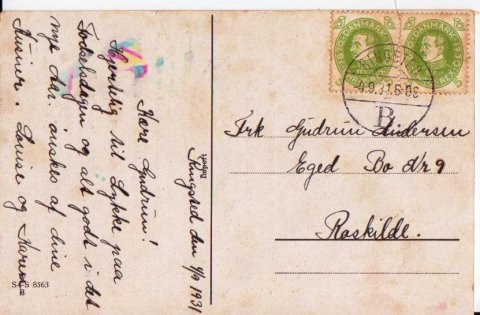 Ringsted den 4/9 1931
Kære Gudrun!
Hjertelig til Lykke paa
Fødselsdagen og alt godt i det
nye Aar. ønskes af dine
Kusiner. Louise og Karen
S & S 8363
DANMARK
DANMARK
4.9.31.8-9
B
Frk Gudrun Andersen
Eged Bo Nr 9
Roskilde.